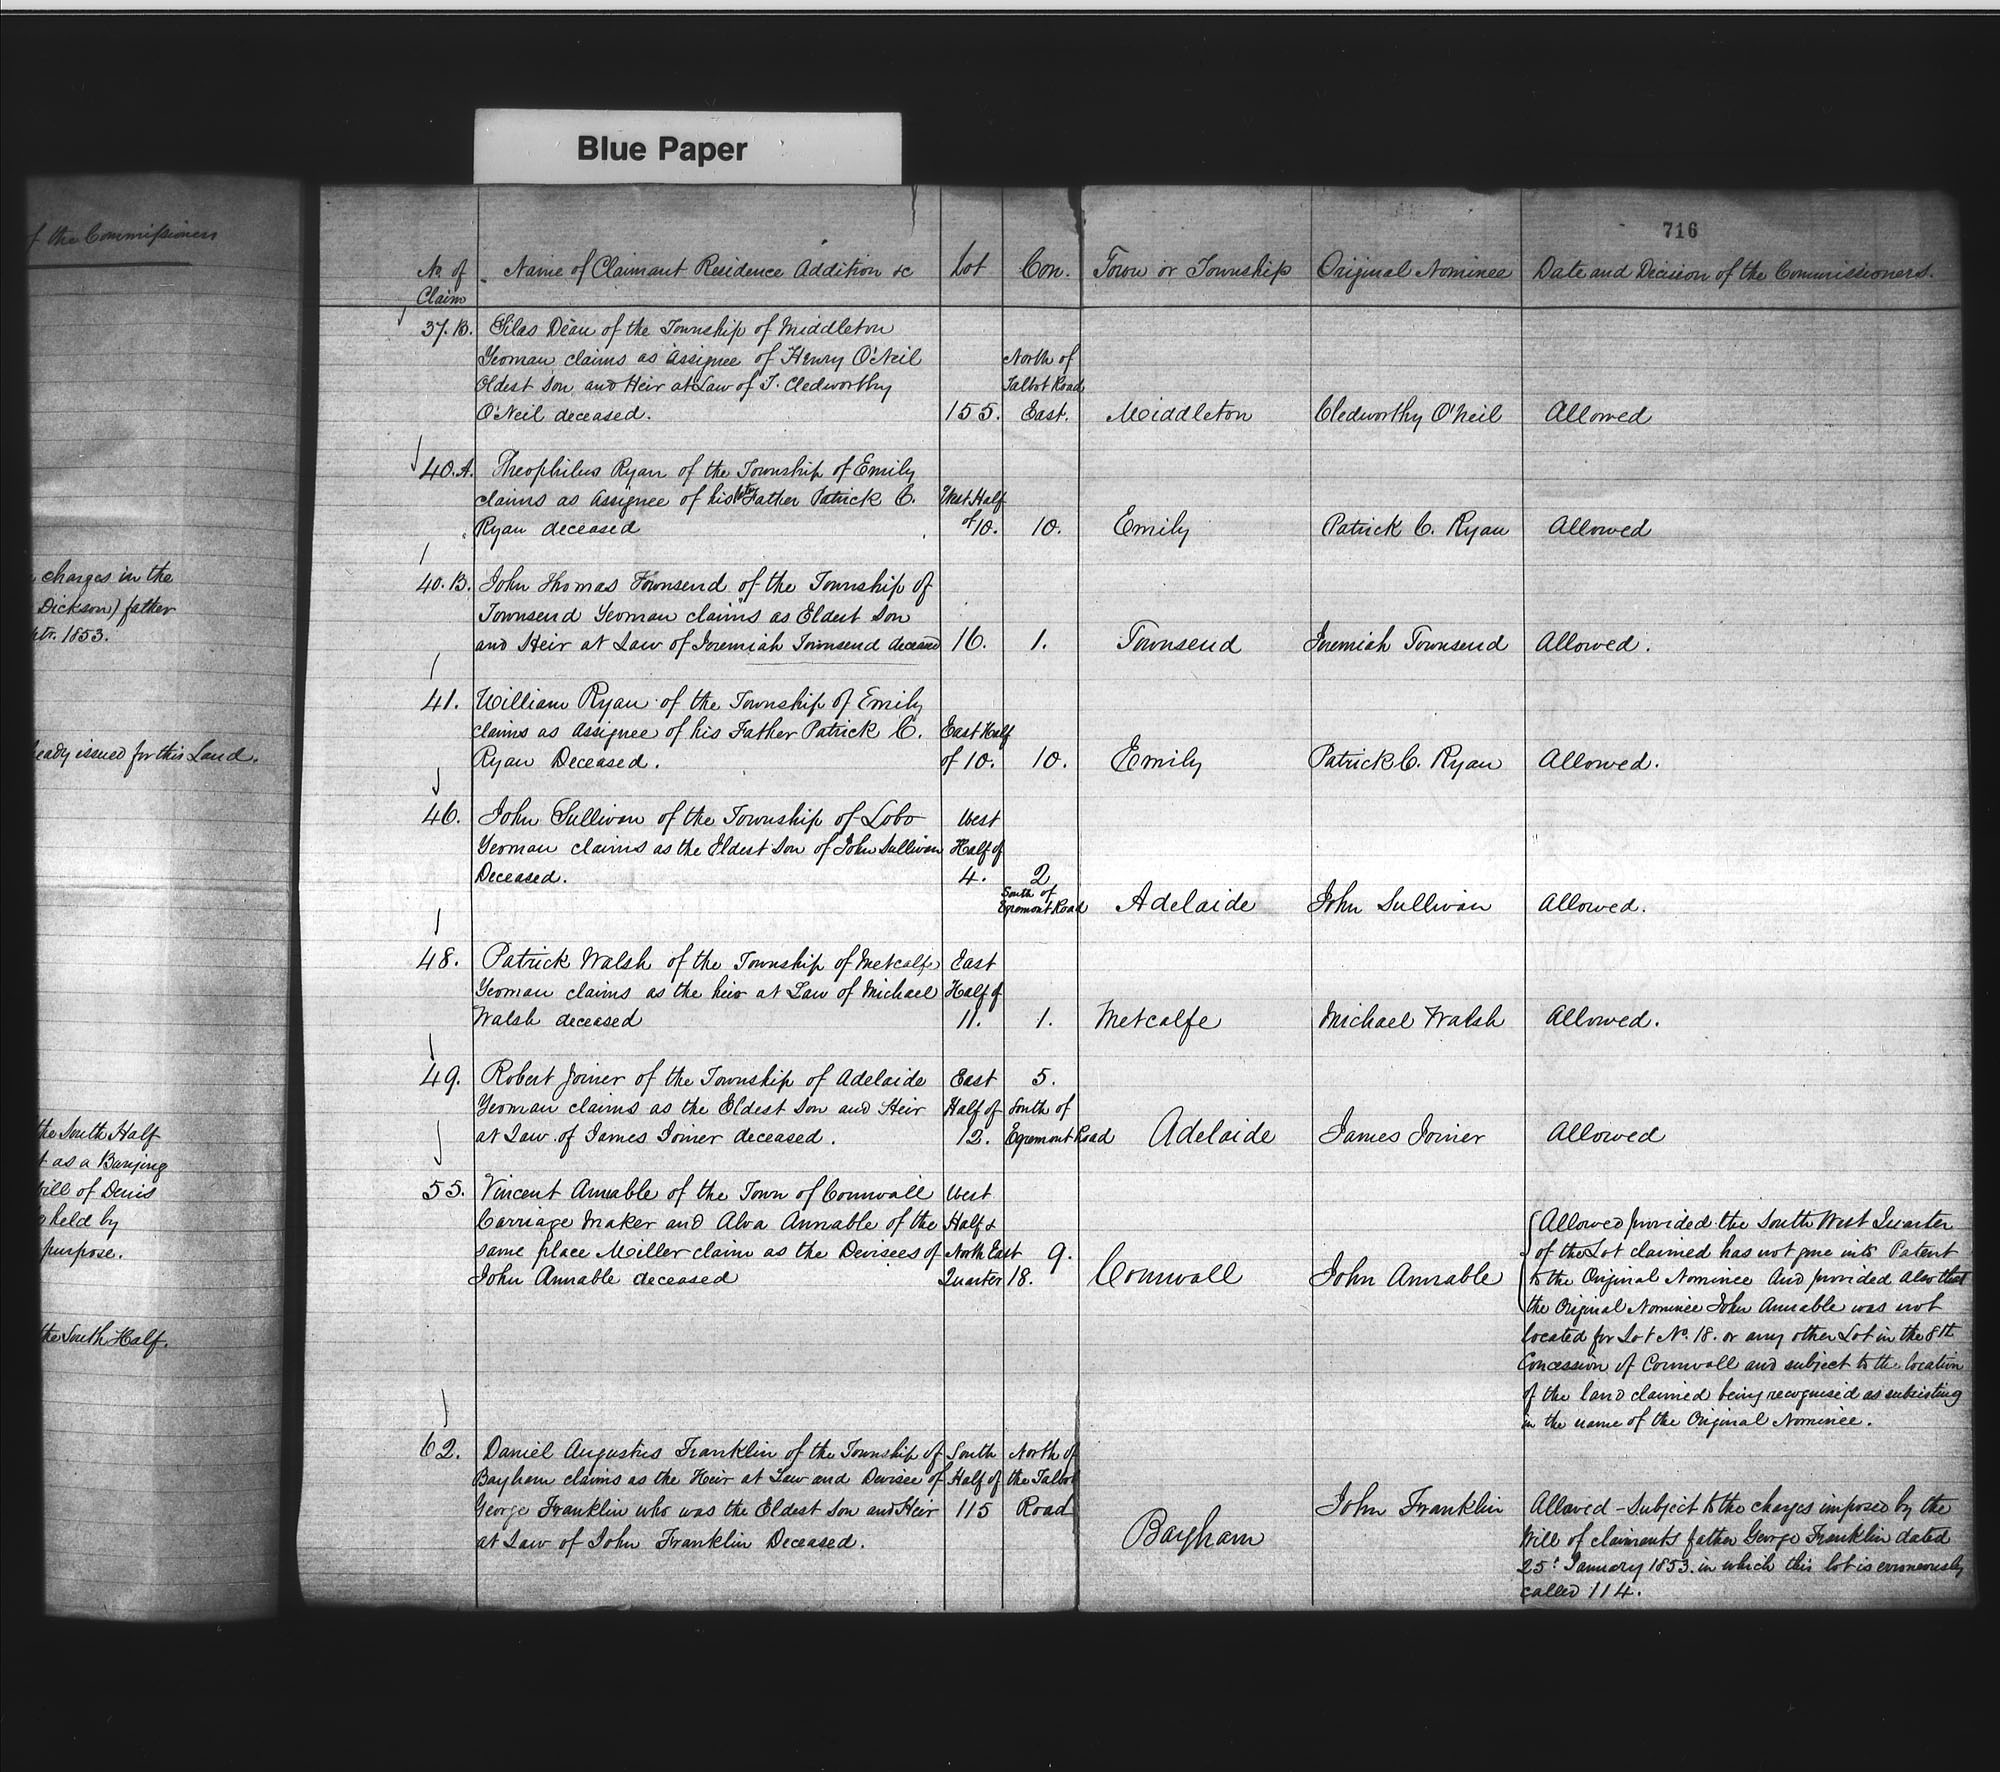 Blue Paper
f the Commissioners
charges in the
Dickson) father
1853.
eady issued for this Land.
the South Half
t as a
will of Denis
held by
purpose.
the South Half.
716
No. of Claim
Name of Claimant Residence Addition &c
Lot
Con.
Town or Township
Original Nominee
Date and Decision of the Commissioners.
37.B.
Silas Dean of the Township of Middleton
Yeoman claims as assignee of Henry O'Neil
Oldest Son and Heir at Law of T. Cledworthy
O'Neil deceased.
155.
North of
Talbot Road
East.
Middleton
Cledworthy O'Neil
Allowed
40.A.
Theophilus Ryan of the Township of Emily
claims as Assignee of his Father Patrick C.
Ryan deceased
West Half
of 10.
10.
Emily
Patrick C. Ryan
Allowed
40.B.
John Thomas Townsend of the Township of
Townsend Yeoman claims as Eldest Son
and Heir at Law of Jeremiah Townsend deceased
16.
1.
Townsend
Jeremiah Townsend
Allowed.
41.
William Ryan of the Township of Emily
claims as Assignee of his Father Patrick C.
Ryan Deceased.
East Half
of 10.
10.
Emily
Patrick C. Ryan
Allowed.
46.
John Sullivan of the Township of Lobo
Yeoman claims as the Eldest Son of John Sullivan
Deceased.
West
Half of
4.
2
South of
Egremont Road
Adelaide
John Sullivan
Allowed.
48.
Patrick Walsh of the Township of Metcalfe
Yeoman claims as the heir at Law of Michael
Walsh deceased
East
Half of
11.
1.
Metcalfe
Michael Walsh
Allowed.
49.
Robert Joiner of the Township of Adelaide
Yeoman claims as the Eldest Son and Heir
at Law of James Joiner deceased.
East
Half of
12.
5.
South of
Egremont Road
Adelaide
James Joiner
Allowed
55.
Vincent Annable of the Town of Cornwall
Carriage Maker and Alva Annable of the
same place Miller claim as the Devisees of
John Annable deceased
West
Half &
North East
Quarter 18.
9.
Cornwall
John Annable
Allowed provided the South West Quarter
of the Lot claimed has not gone into Patent
to the Original Nominee and provided also that
the Original Nominee John Annable was not
located for Lot No. 18. or any other Lot in the 8th
Concession of Cornwall and subject to the location
of the land claimed being recognised as subsisting
in the name of the Original Nominee.
62.
Daniel Augustus Franklin of the Township of
Bayham claims as the Heir at Law and Devisee of
George Franklin who was the Eldest Son and Heir
at Law of John Franklin Deceased.
South
Half of
115
North of
the Talbot
Road
Bayham
John Franklin
Allowed - Subject to the charges imposed by the
Will of claimants father George Franklin dated
25th January 1853. in which this lot is erroneously
called 114.